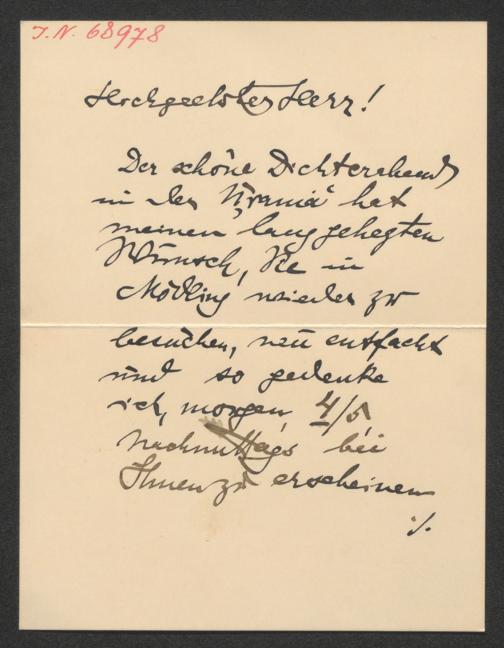 J.N. 68978
Hochgeehrter Herr!
Der schöne Dichterabend
in der „Urania" hat
meinen lang gehegten
Wunsch, Sie in
Mödling wieder zu
besuchen, neu entfacht
und so gedenke
ich, morgen, 4/5,
nachmittags bei
Ihnen zu erscheinen
./.